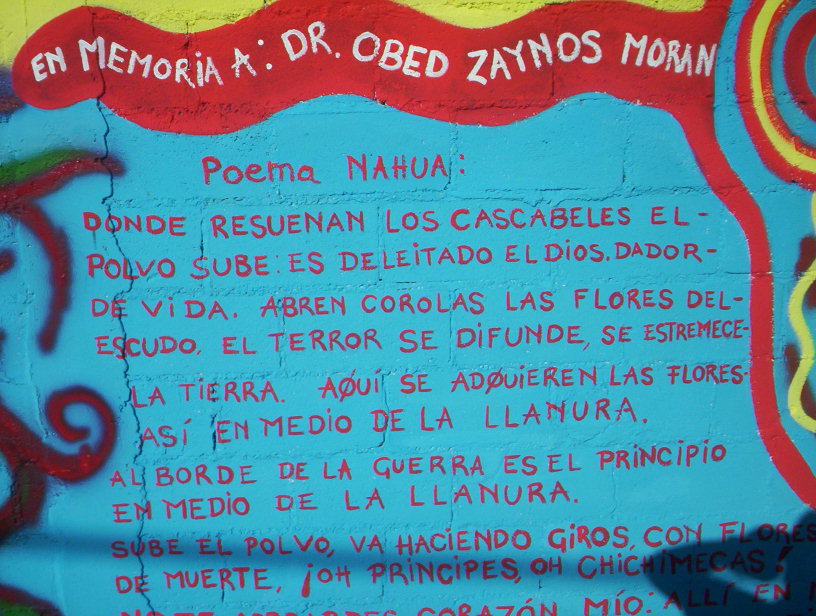 EN MEMORIA A: DR. OBED ZAYNOS MORAN
Poema NAHUA:
DONDE RESUENAN LOS CASCABELES EL-
POLVO SUBE: ES DELEITADO EL DIOS. DADOR-
DE VIDA. ABREN COROLAS LAS FLORES DEL-
ESCUDO. EL TERROR SE DIFUNDE, SE ESTREMECE-
LA TIERRA. AQUÍ SE ADQUIEREN LAS FLORES-
ASÍ EN MEDIO DE LA LLANURA.
AL BORDE DE LA GUERRA ES EL PRINCIPIO
EN MEDIO DE LA LLANURA.
SUBE EL POLVO, VA HACIENDO GIROS, CON FLORES
DE MUERTE. ¡OH PRINCIPES, OH CHICHIMECAS!
CORAZÓN MÍO: ALLÍ EN